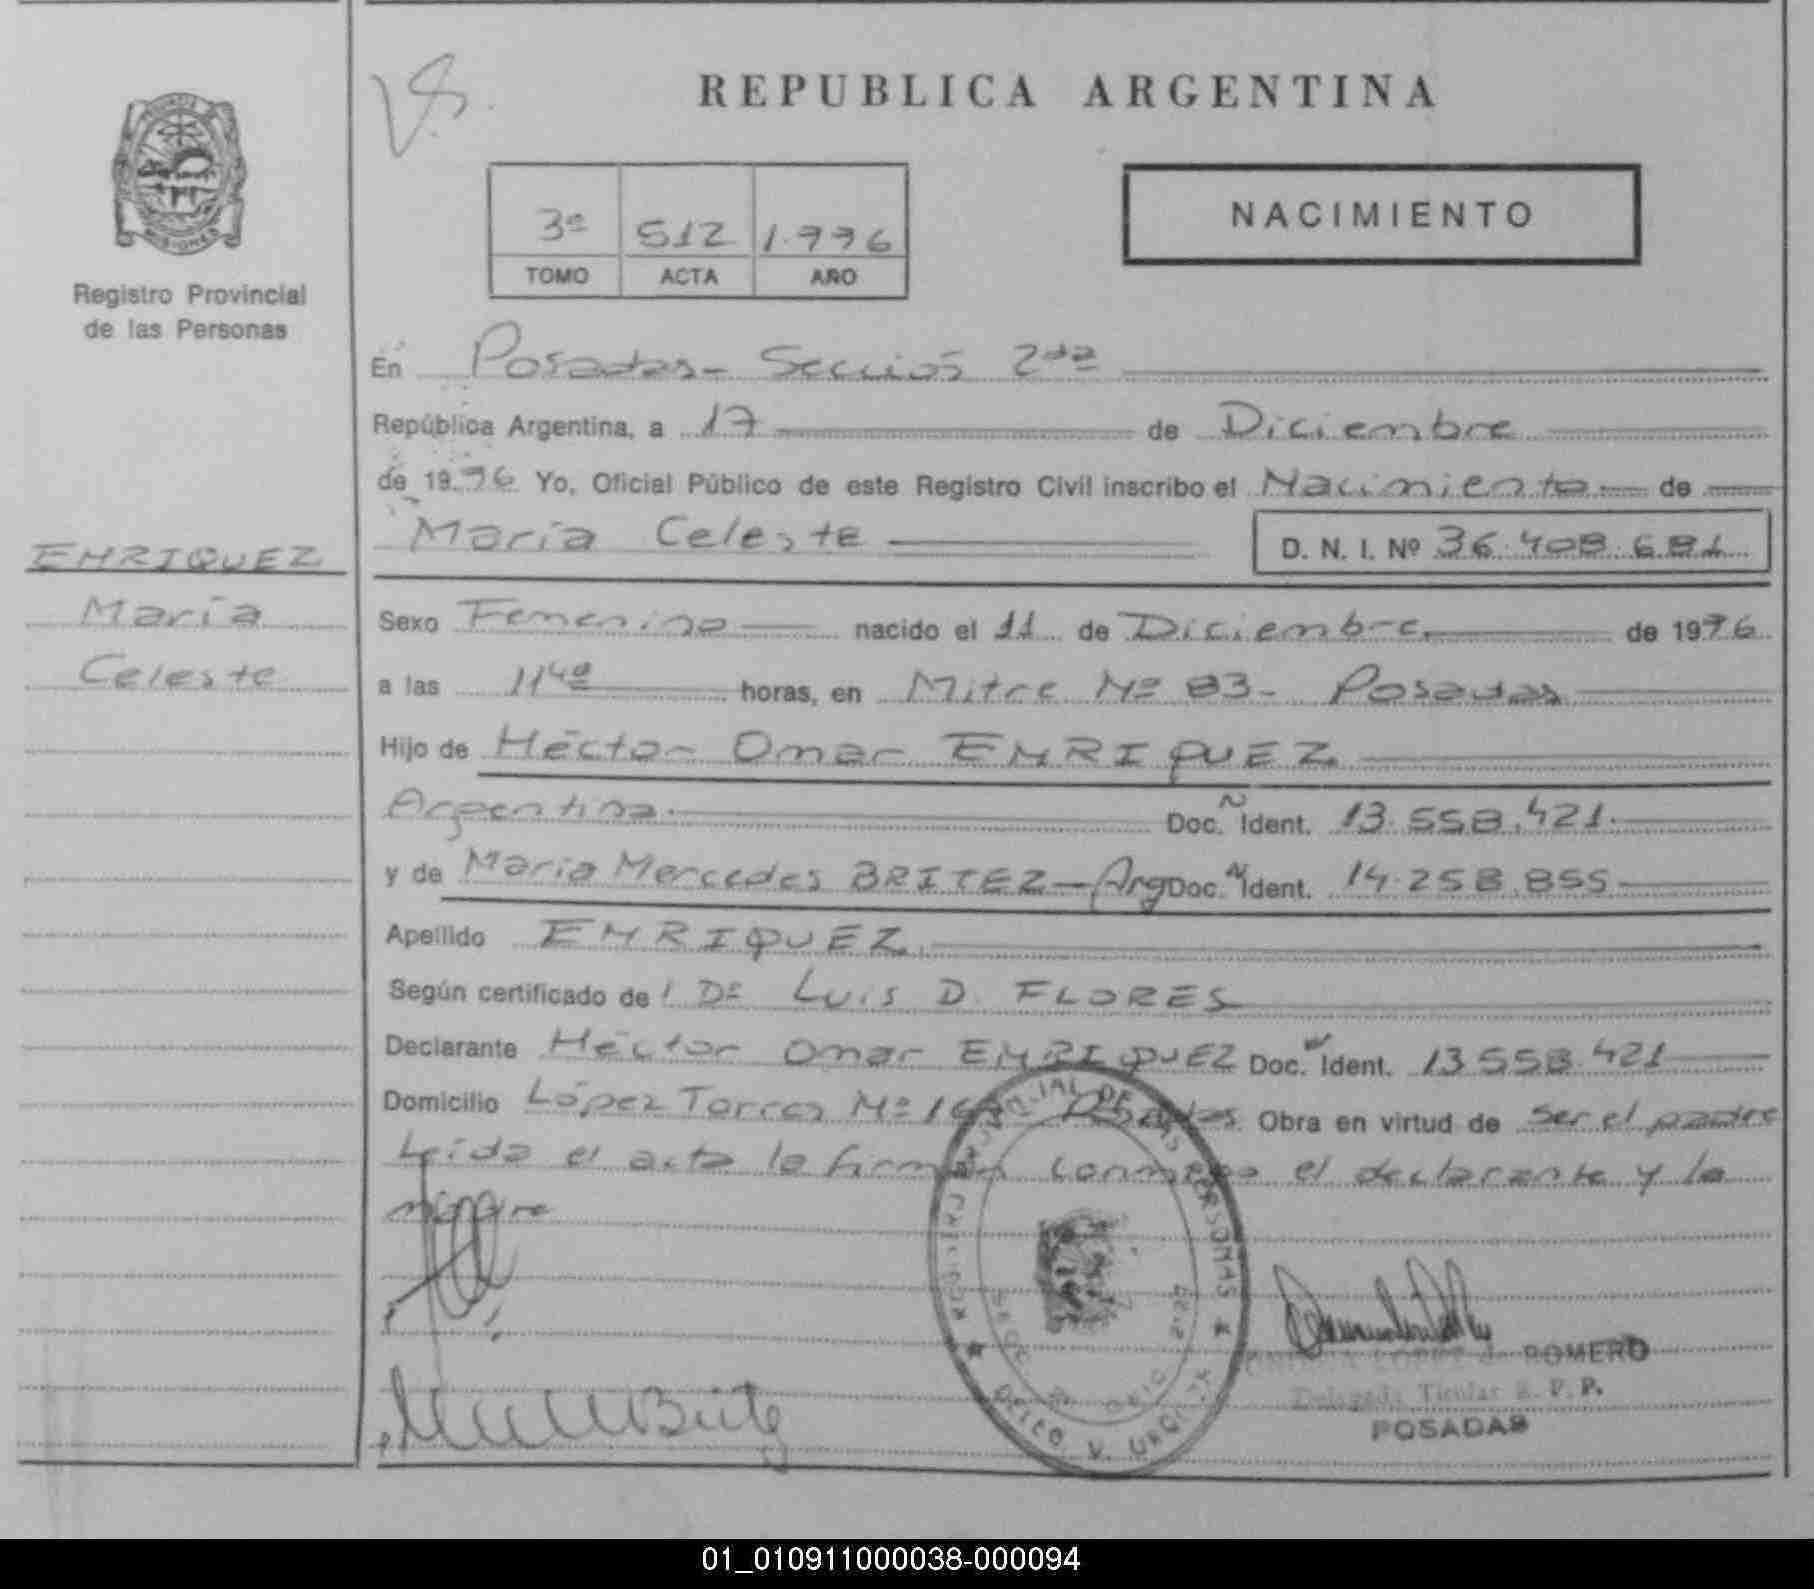 REPUBLICA ARGENTINA
MISIONES
Registro Provincial
de las Personas
3º 512 1.996
TOMO ACTA AÑO
NACIMIENTO
En Posadas - Sección 2da
República Argentina, a 17 de Diciembre
de 1996 Yo, Oficial Público de este Registro Civil inscribo el Nacimiento de
María Celeste D. N. I. Nº 36.408.681
ENRIQUEZ
María
Celeste
Sexo Femenino nacido el 11 de Diciembre de 1996
a las 11 40 horas, en Mitre Nº 83 - Posadas
Hijo de Héctor Omar ENRIQUEZ
Argentina. Doc. N Ident. 13.558.421.
y de María Mercedes BRITEZ - Arg Doc. N Ident. 14.258.855
Apellido ENRIQUEZ
Según certificado de Dr Luis D. FLORES
Declarante Héctor Omar ENRIQUEZ Doc. N Ident. 13.558.421
Domicilio López Torres Nº Posadas Obra en virtud de ser el padre
Leída el acta la firman conmigo el declarante y la
madre
PROVINCIAL DE LAS PERSONAS
LOPEZ de ROMERO
Delegada Titular R. P. P.
POSADAS
01_010911000038-000094